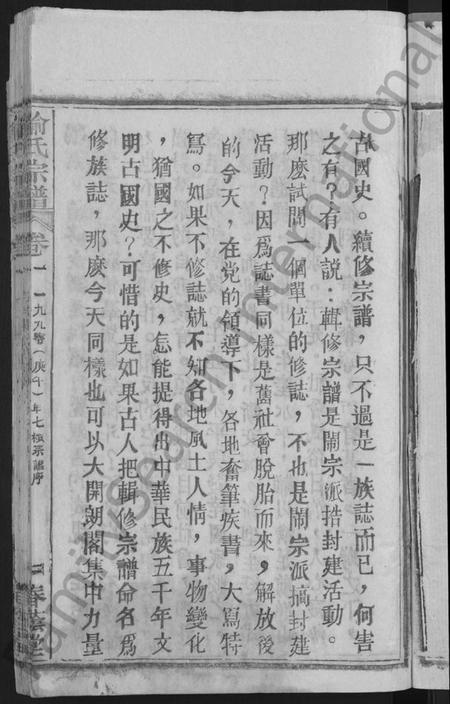 古國史。續修宗譜，只不過是一族誌而已，何害
之有？有人説：輯修宗譜是鬧宗派搞封建活動。
那麽試問一個單位的修誌，不也是鬧宗派搞封建
活動？因爲誌書同樣是舊社會脱胎而來，解放後
的今天，在党的領導下，各地奮筆疾書，大寫特
寫。如果不修誌就不知各地風土人情，事物變化
，猶國之不修史，怎能提得出中華民族五千年文
明古國史？可惜的是如果古人把輯修宗譜命名爲
修族誌，那麽今天同樣也可以大開朗閣集中力量
喻氏宗譜
卷一
一九九零(庚午)年七極宗譜序
一
FamilySearch International